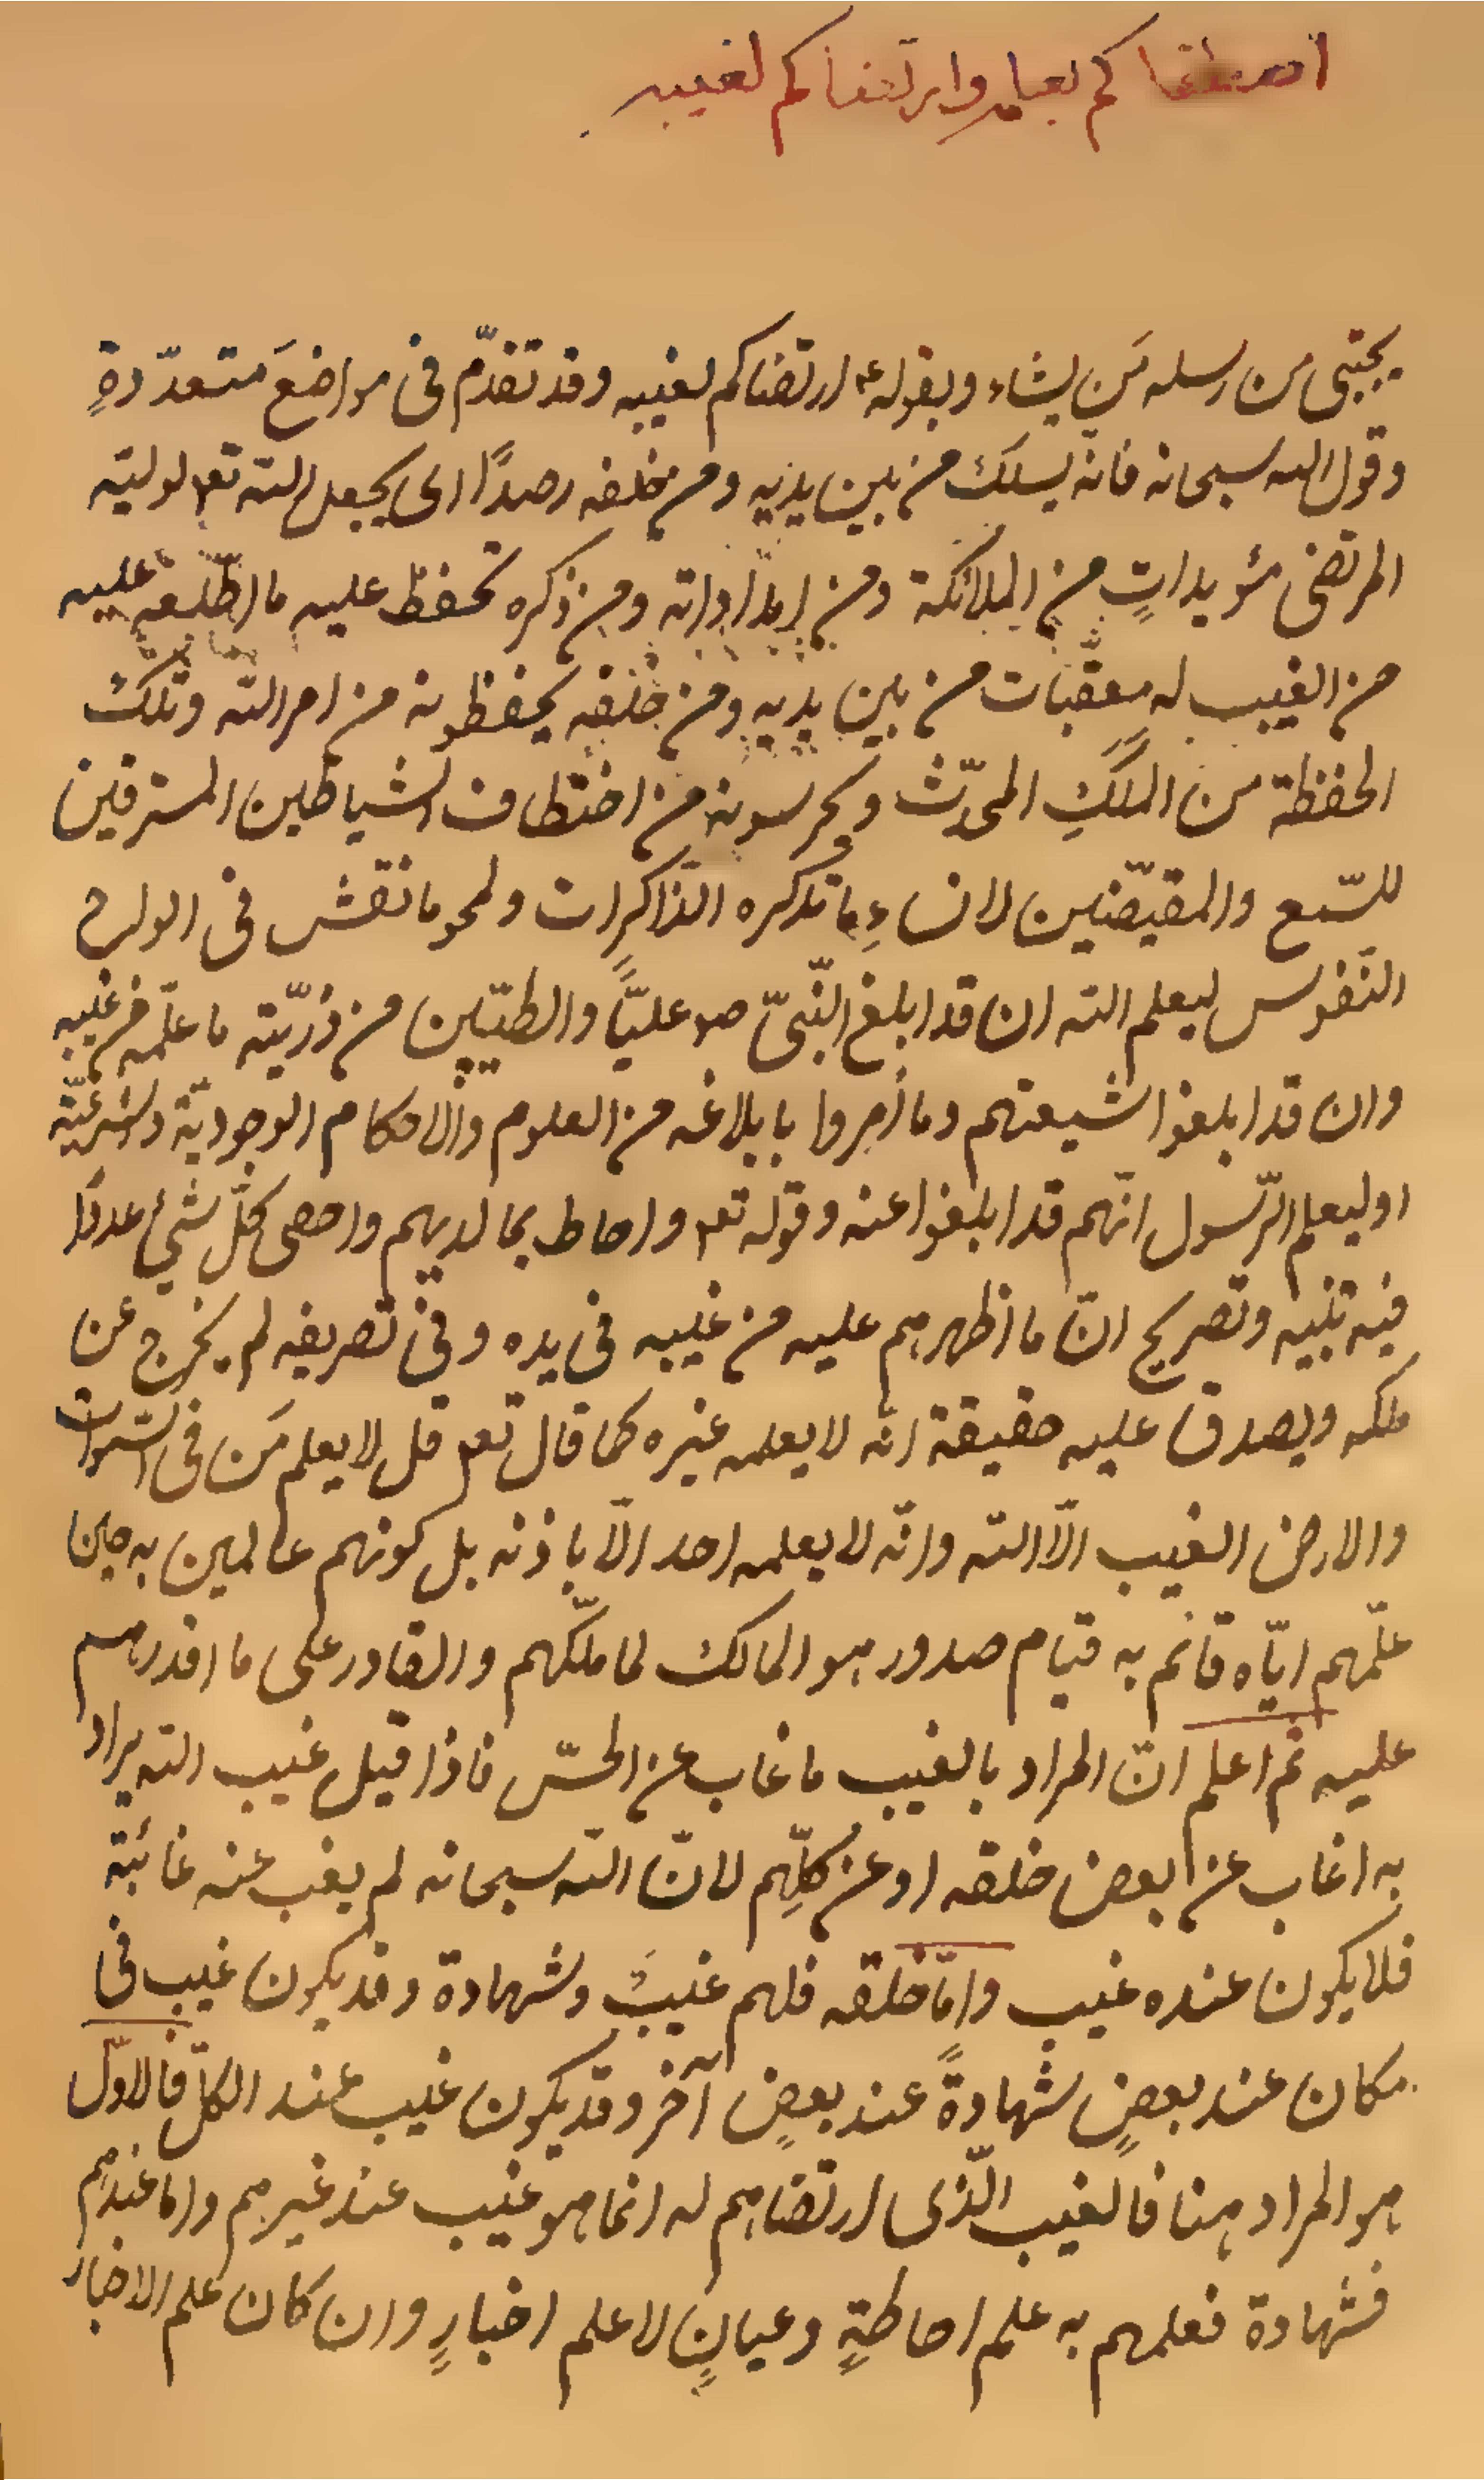 اصطفاكم بعلمه وارتضاكم لغيبه
يجتبى من رسله مَن يشاء وبقوله ع ارتضاكم لغيبه وقد تقدّم فى مواضعَ متعدّدةٍ
وقول الله سبحانه فانّه يسلك من بين يديه ومن خلفه رصدًا اى يجعل الله تعم لوليّه
المرتضى مؤيداتٍ من الملائكة ومن امداداته ومن ذكره تحفظ عليه ما اطّلعه عليه
من الغيب له معقّبات من بين يديه ومن خلفه يحفظونه من امر الله وتلك
الحفظة من الملَكِ المحدّث ويحرسونه من اختطاف الشياطين المسترقين
للسّمع والمقيّضين لانساءِ ما تذكره الذّاكرات ولمحو ما نقش فى الواح
النّفوس ليعلم الله ان قد ابلغ النّبىّ صم عليًّا والطيّبين من ذرّيّته ما علّمه من غيبه
وان قد ابلغوا شيعتهم وما اُمروا بابلاغه من العلوم والاحكام الوجوديّة والشرعيّة
او ليعلم الرّسول انّهم قد ابلغوا عنه وقوله تعم واحاط بما لديهم واحصى كلّ شئ عددًا
فيه تنبيه وتصريح انّ ما اظهرهم عليه من غيبه فى يده وفى تصريفه لم يخرج عن
ملكه ويصدق عليه حقيقة انّه لا يعلمه غيره كما قال تعم قل لا يعلم مَن فى السّموات
والارض الغيب الّا الله وانّه لا يعلمه احد الّا باذنه بل كونهم عالمين به حين
علّمهم ايّاه قائم به قيام صدور هو المالك لما ملّكهم والقادر على ما اقدرهم
عليه ثم اعلم انّ المراد بالغيب ما غاب عن الحسّ فاذا قيل غيب الله يراد
به اغاب عن بعض خلقه او عن كلّهم لانّ الله سبحانه لم يغب عنه غائبة
فلا يكون عنده غيب وامّا خلقه فلهم غيبٌ وشهادة وقد يكون غيب فى
مكان عند بعضٍ شهادةً عند بعضٍ آخر وقد يكون غيب عند الكلّ فالاوّل
هو المراد هنا فالغيب الّذى ارتضاهم له انما هو غيب عند غيرهم واما عندهم
فشهادة فعلمهم به علم احاطةٍ وعيانٍ لا علم اخبارٍ وان كان علم الاخبار